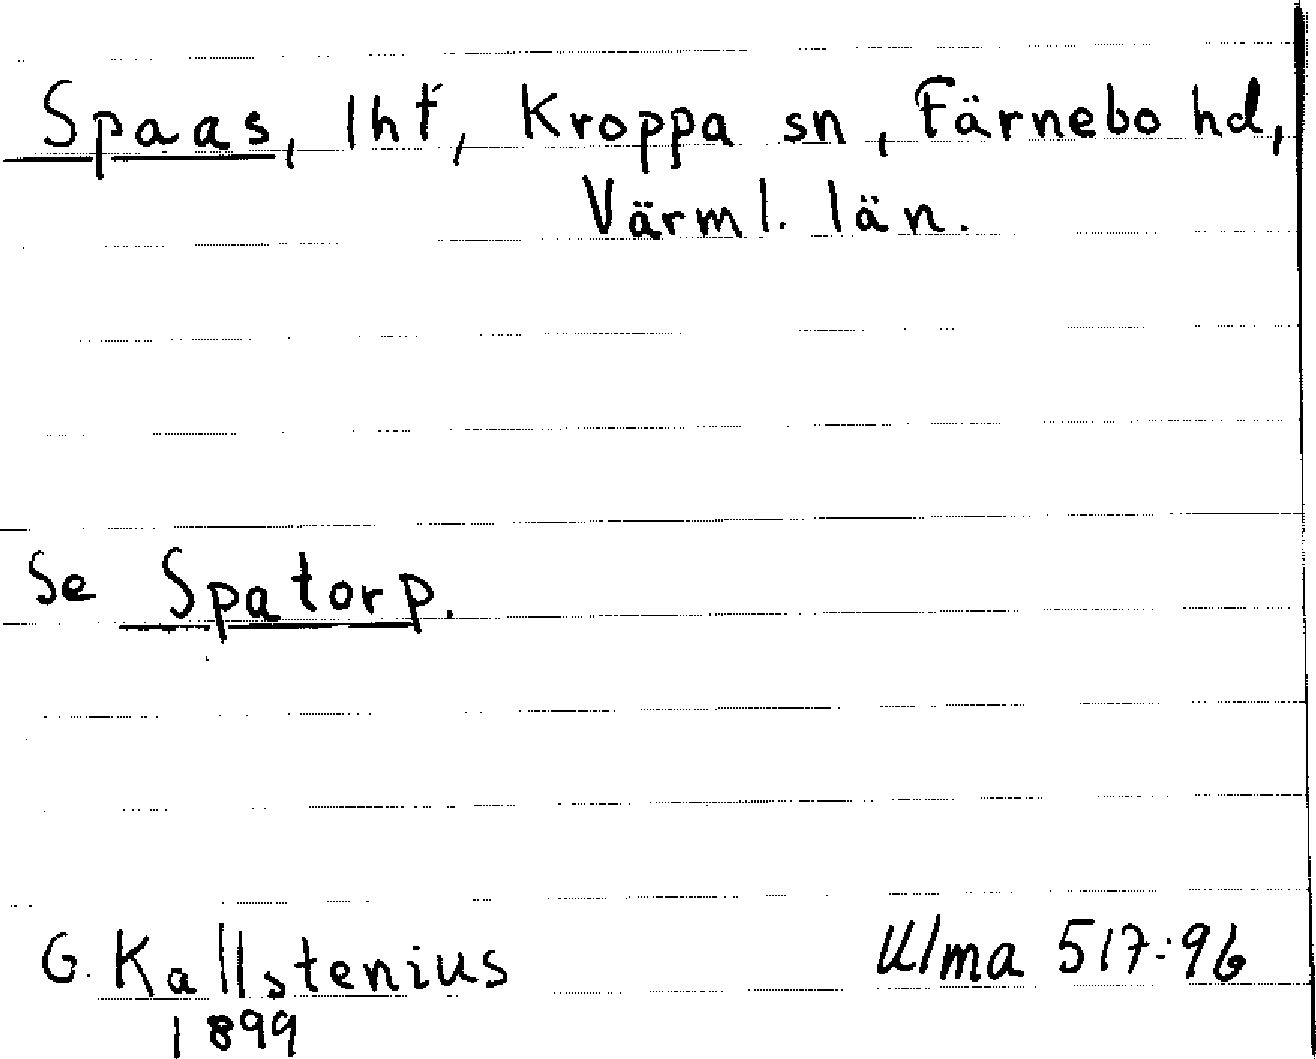 Spaas, lht, Kroppa sn, Färnebo hd,
Värml. län.
Se Spatorp.
G. Kallstenius Ulma 517:96
1899